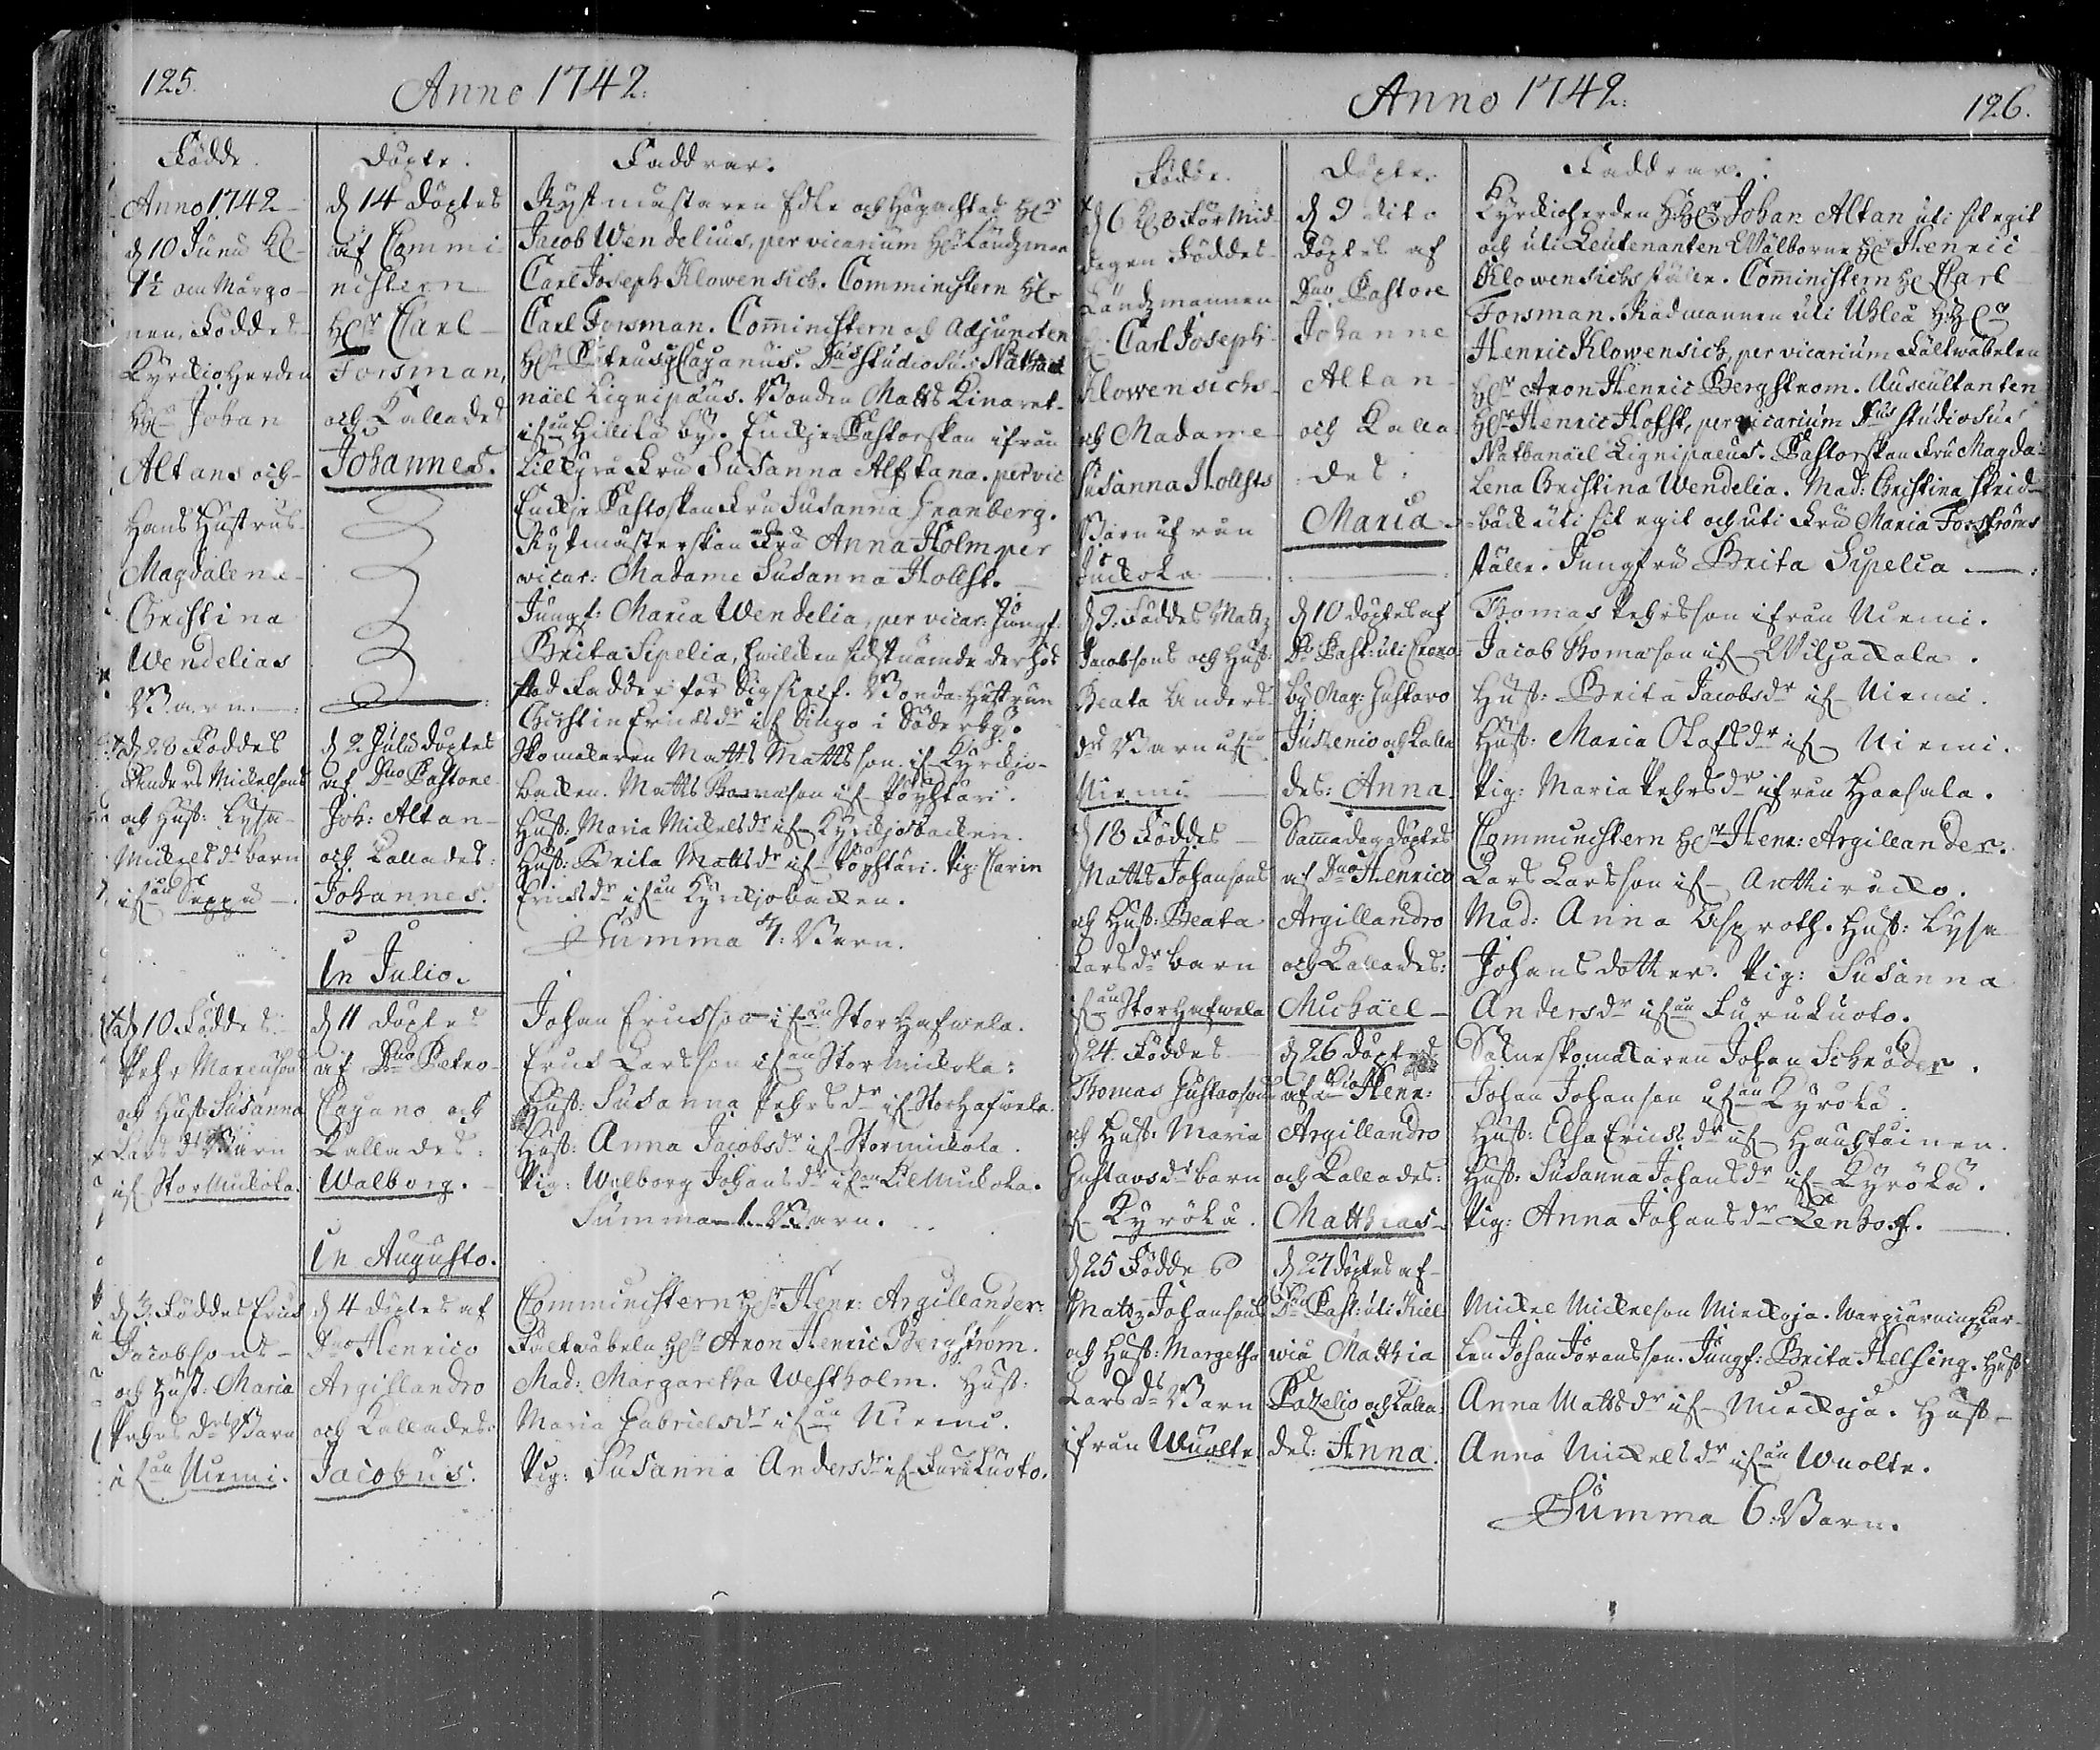 125.
Anno 1742.
Födde.
Anno 1742
d 10 Junii Kl
1½ om Morgo-
nen, Föddes
Kyrckioherden
Hr Johan
Altans och
Hans Hustrus
Magdalena
Christina
Wendelias
Barn
d 28 Föddes
Anders Mickelsons
och Hust: Lysa
Mickels dr barn
if:ån Seppä
d 10 Föddes
Pehr
och Hust: Susanna
Lars dr Barn
if StorMuckola.
d 3. Föddes Erick
Jacobsons
och Hust: Maria
Pehrs dr Barn
if:ån Niemi.
Döpte.
d 14 Döptes
af Commi-
nistern
Hr Carl
Forsman,
och Kallades
Johannes.
d 2 Julii döptes
af Dno Pastore
Joh: Altan
och Kallades:
Johannes.
In Julio.
d 11 Döptes
af Dno Petro
Cajano och
Kallades:
Walborg.
In Augusto.
d 4 döptes af
Dno Henrico
Argillandro
och Kallades:
Jacobus.
Faddrar.
Rystmästaren Edle och Högachtad Hr
Jacob Wendelius, per vicarium Hr Ländzman
Carl Joseph Klowensich. Comministern Hr
Carl Forsman. Comministern och Adjuncten
Hr Petrus Cajanus. Dns Studiosus Natha
näel Lignipäus. Bonden Matts Kinaret
if:ån Hillilä by. Enckje Pastorskan ifrån
Lillkyrå Fru Susanna Alftana. per vic
Enckje Pastorskan Fru Susanna Granberg.
Rystmästerskan Fru Anna Holm per
vicar: Madame Susanna Hollst.
Jungf: Maria Wendelia, per vicar: Jungf:
Brita Sipelia, hwilcken sidstnämde der hos
stod Fadder för sig sielf. Bonda-Hustrun
Christin Ericks dr if Singo i Söderby.
Skomakaren Matts Mattsson if Kyrckio-
backen. Matts Thomason if Pöyhtäri.
Hust: Maria Mickels dr if Kyrckjobacken.
Hust: Brita Matts dr if Pöyhtäri. Pig: Carin
Ericks dr if:ån Kyrckjobacken.
Summa 4: Barn.
Johan Ericsson if:ån StorHafwela.
Erick Larsson if:ån StorMickola:
Hust: Susanna Pehrs dr if StorHafwela.
Hust: Anna Jacobs dr if Stormickola.
Pig: Walborg Johans dr if:ån LilMuckola.
Summa 1. Barn.
Comministern Hr Henr: Argillander:
Fältwäbeln Hr Aron Henric Bergström.
Mad: Margaretha Westholm. Hust:
Maria Gabriels dr if:ån Niemi.
Pig: Susanna Anders dr if Furuluoto.
Anno 1742.
126.
Födde.
d 6 Kl 3 För Mid-
dagen Föddes
Ländzmannen
Carl Joseph
Klowensichs
och Madame
Susanna Hollsts
Barn ifrån
Juckola
d 9. Föddes Mattz
Jacobsons och Hust:
Beata Anders
dr Barn if:ån
Niemi
d 18 Föddes
Matts Johansons
och Hust: Beata
Lars dr barn
if:ån StorHafwela
d 24. Föddes
Thomas Gustavsons
och Hust: Maria
Gustavs dr barn
if Kyrölä.
d 25 Födde s
Mattz Johansons
och Hust: Margetha
Lars dr Barn
ifrån Wuolte
Döpte.
d 9 dito
döptes af
Dno Pastore
Johanne
Altan
och Kalla
des:
Maria
d 10 döptes af
Dn Past: uti Crono
by Mag: Gustavo
Justenio och Kalla
des: Anna.
Samma dag döptes
af Dno Henrico
Argillandro
och Kallades:
Michäel
d 26 döptes
af Dno Henr:
Argillandro
och Kallades:
Matthias
d 27 döptes af
Dno Past: uti Kiel
wiä Matthia
Pazelio och Kalla
des: Anna.
Faddrar.
Kyrckioherden Hr Johan Altan uti sit egit
och uti Leutenanten Wälborne Hr Henric
Klowensichs ställe. Comministern Hr Carl
Forsman. Rådmannen uti Uhleå Hr
Henric Klowensich, per vicarium Fältwäbelen
Hr Aron Henric Bergstrom. Auscultanten
Hr Henric Hollst, per vicarium Dns Studiosus
Nathanäel Lignipaeus. Pastorskan Fru Magda-
lena Christina Wendelia. Mad: Christina Skrid-
bäck uti sit egit och uti Fru Maria Forsströms
ställe. Jungfru Brita Sipelia
Thomas Pehrsson ifrån Niemi.
Jacob Thomason if Wiljackala.
Hust: Brita Jacobs dr if Niemi.
Hust: Maria Olofs dr if Niemi.
Pig: Maria Pehrs dr ifrån Haasala.
Comministern Hr Henr: Argillander.
Lars Larsson if Anttirucko.
Mad: Anna Asproth. Hust: Lysa
Johansdotter. Pig: Susanna
Anders dr if:ån Furuluoto.
Johan Schröder.
Johan Johanson if:ån Kyrölä.
Hust: Elsa Ericks dr if Hauktainen.
Hust: Susanna Johans dr if Kyrölä.
Pig: Anna Johans dr Lenhoff.
Mickel Mickelson Mieckoja.
Johan Jöransson. Jungf: Brita Helsing. Hust:
Anna Matts dr if Mieckoja. Hust
Anna Mickels dr if:ån Wuolte.
Summa 6: Barn.